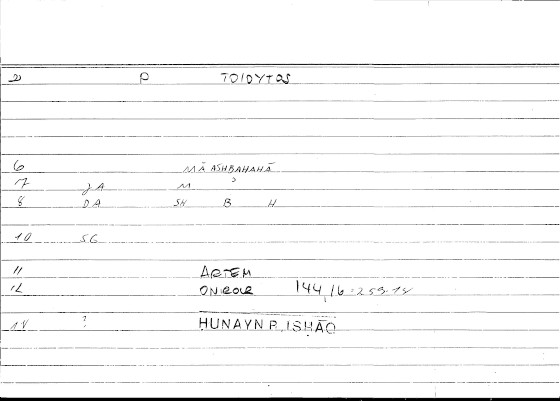 2 P TOIOYTOS
6 MĀ ASHBAHAHĀ
7 JA M
8 DA SH B H
10 SG
11 ARTEM
12 ONIROCR 144,16 = 259.14
14 ? ḤUNAYN B. ISḤĀQ